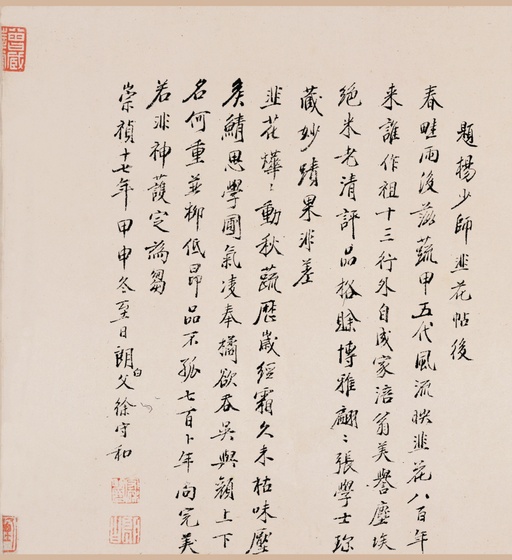 題楊少師韭花帖後
春畦雨後茲蔬甲五代風流映韭花八百年
来誰作祖十三行外自成家涪翁美譽塵埃
絕米老清評品格賒博雅翩〻張學士珎
藏妙蹟果非差
韭花燁〻動秋蔬歷歲經霜久未枯味壓
矦鯖思學圃氣凌奉橘欲吞吳與顏上下
名何重並柳低昂品不孤七百卜年尚完美
若非神護定為芻
崇禎十七年甲申冬至日朗白父徐守和